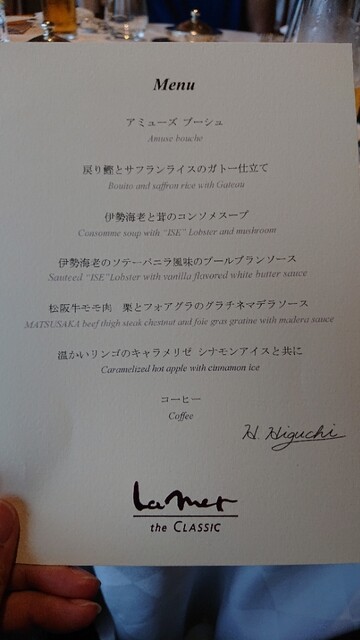 Menu
アミューズ ブーシュ
Amuse bouche
戻り鰹とサフランライスのガトー仕立て
Bonito and saffron rice with Gateau
伊勢海老と茸のコンソメスープ
Consomme soup with "ISE" Lobster and mushroom
伊勢海老のソテーバニラ風味のブールブランソース
Sauteed "ISE"Lobster with vanilla flavored white butter sauce
松阪牛モモ肉 栗とフォアグラのグラチネマデラソース
MATSUSAKA beef thigh steak chestnut and foie gras gratine with madera sauce
温かいリンゴのキャラメリゼ シナモンアイスと共に
Caramelized hot apple with cinnamon ice
コーヒー
Coffee
H. Higuchi
La mer
the CLASSIC